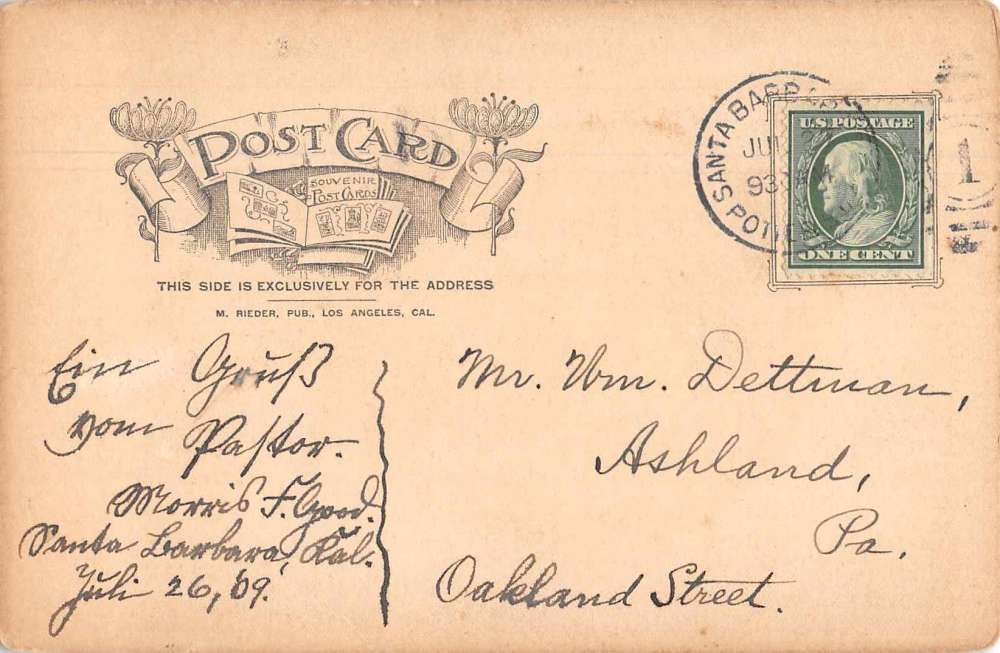 POST CARD
SOUVENIR
POST CARDS
THIS SIDE IS EXCLUSIVELY FOR THE ADDRESS
M. RIEDER, PUB., LOS ANGELES, CAL.
SANTA BARBARA
JUL
930
U.S. POSTAGE
ONE CENT
1
Ein Gruß
vom Pastor.
Morris F. Good.
Santa Barbara, Kal.
Juli 26, '09.
Mr. Wm. Dettman,
Ashland,
Pa.
Oakland Street.